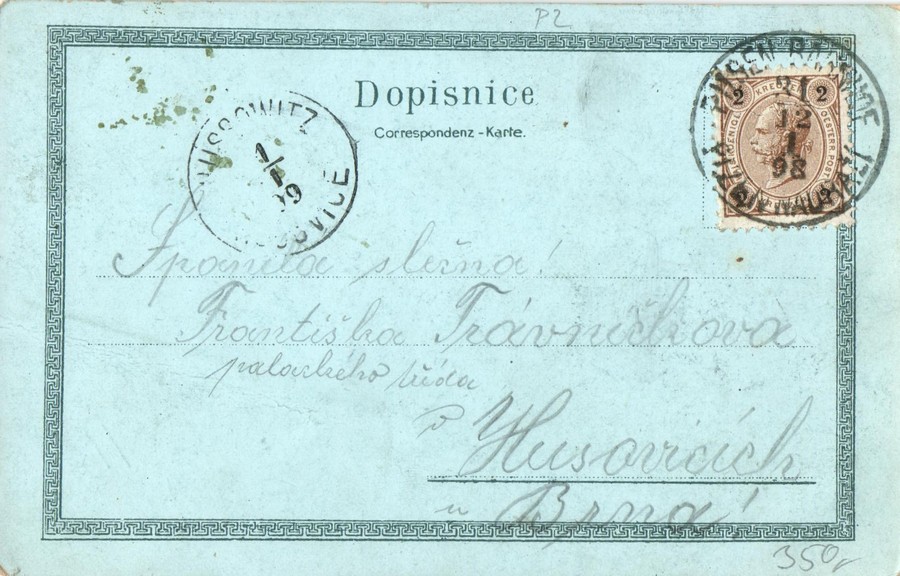 P2
Dopisnice
Correspondenz-Karte.
HUSSOWITZ
1/1
99
HUSOVICE
2 KREUZER 2
OESTERR. POST
31
12
1
98
Spanilá slečna!
Františka Trávničkova
palackého třída
v Husovicích
u Brna!
350,-